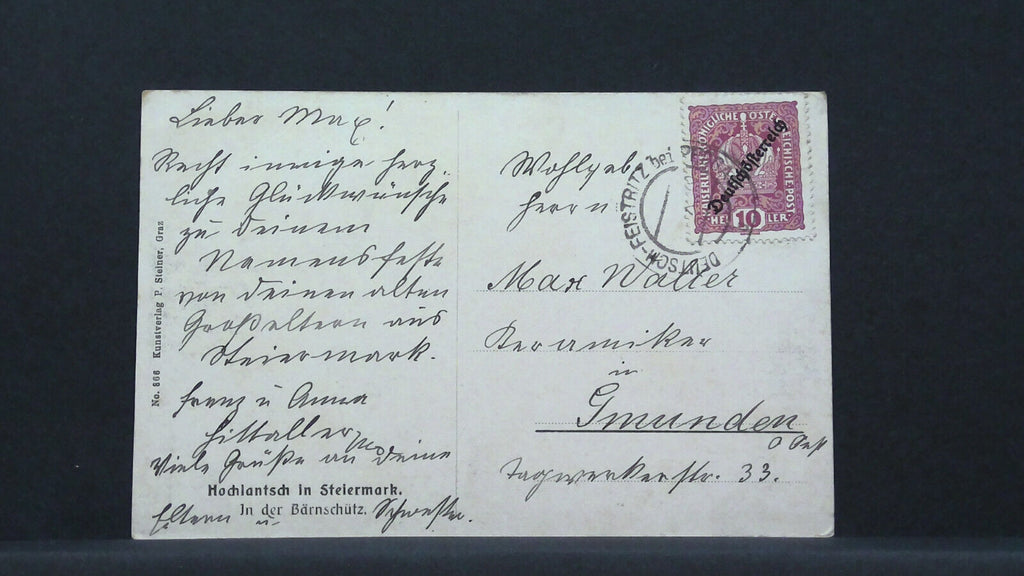 Lieber Max!
Recht innige herz
liche Glückwünsche
zu Deinem
Namensfeste
von Deinen alten
Großeltern aus
Steiermark.
Franz u Anna
Viele Grüße an Deine
Eltern u. Schwester.
No. 866 Kunstverlag P. Steiner, Graz
Hochlantsch in Steiermark.
In der Bärnschütz.
KAISERLICHE KÖNIGLICHE ÖSTERREICHISCHE POST
HELLER
10
Deutschösterreich
DEUTSCH-FEISTRITZ bei
Wohlgeb
Herrn
Max Walter
Keramiker
in
Gmunden
O Öst
Tagwerkerstr. 33.